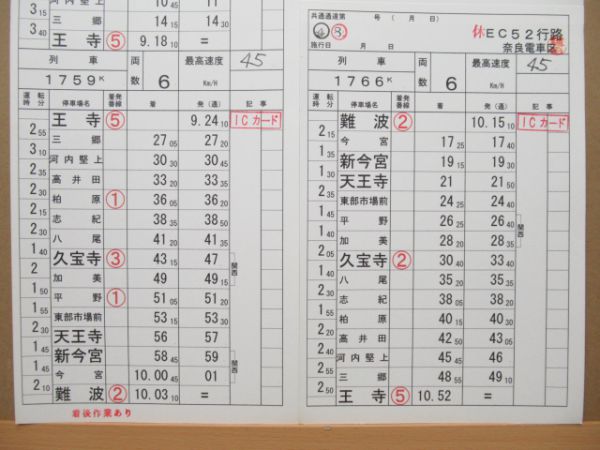 10 45 11
3 15 三郷 14 15 14 30
3 40 王寺 ⑤ 9.18 10 =
列車 両数 最高速度
1759K 6 45 Km/H
運転時分 停車場名 着発番線 着 発(通) 記事
王寺 ⑤ 9.24 10 ICカード
2 55 三郷 27 05 27 20
3 10 河内堅上 30 30 30 45
2 35 高井田 33 20 33 35
2 30 柏原 ① 36 05 36 20
2 15 志紀 38 35 38 50
2 30 八尾 41 20 41 35
1 40 久宝寺 ③ 43 15 47 関西
2 加美 49 49 15
1 50 平野 ① 51 05 51 20
1 55 東部市場前 53 15 53 30
2 30 天王寺 56 57
1 45 新今宮 58 45 59 関西
1 45 今宮 10.00 45 01
2 10 難波 ② 10.03 10 =
着後作業あり
共通通達第 号 ( 月 日)
施行日 月 日
休EC52行路
奈良電車区
列車 両数 最高速度
1766K 6 45 Km/H
運転時分 停車場名 着発番線 着 発(通) 記事
難波 ② 10.15 10 ICカード
2 15 今宮 17 25 17 40
1 35 新今宮 19 15 19 30
1 30 天王寺 21 21 50
2 30 東部市場前 24 20 24 35
1 50 平野 26 25 26 40 関西
1 40 加美 28 20 28 35
1 55 久宝寺 ② 30 40 33 40
1 40 八尾 35 20 35 35
2 30 志紀 38 05 38 20
1 55 柏原 40 15 40 30
2 20 高井田 42 50 43 05
2 40 河内堅上 45 45 46
2 55 三郷 48 55 49 10
2 50 王寺 ⑤ 10.52 =